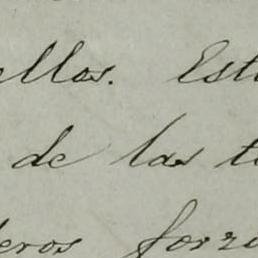 ellos. Est
de las t
eros forzo